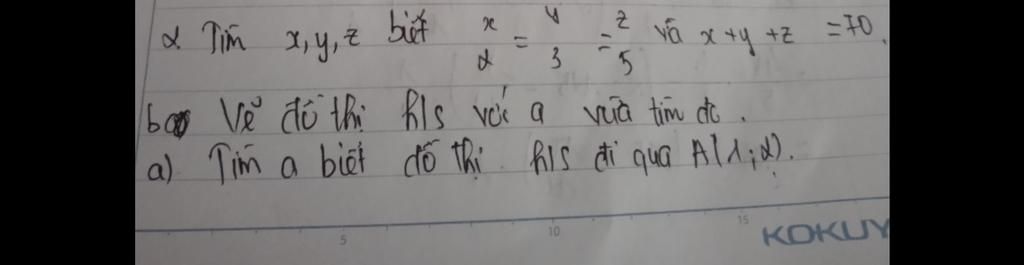 2 Tìm x, y, z biết x/2 = y/3 = z/5 và x + y + z = 70.
b Vẽ đồ thị h/s với a vừa tìm đc.
a) Tìm a biết đồ thị h/s đi qua A(1; 2).
5 10 15 KOKUY